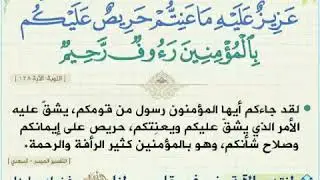 عَزِيزٌ عَلَيْهِ مَا عَنِتُّمْ حَرِيصٌ عَلَيْكُم
بِالْمُؤْمِنِينَ رَءُوفٌ رَّحِيمٌ
[التوبة - الآية ١٢٨]
• لقد جاءكم أيها المؤمنون رسول من قومكم، يشقّ عليه
الأمر الذي يشقّ عليكم ويعنِتكم، حريص على إيمانكم
وصلاح شأنكم، وهو بالمؤمنين كثير الرأفة والرحمة.